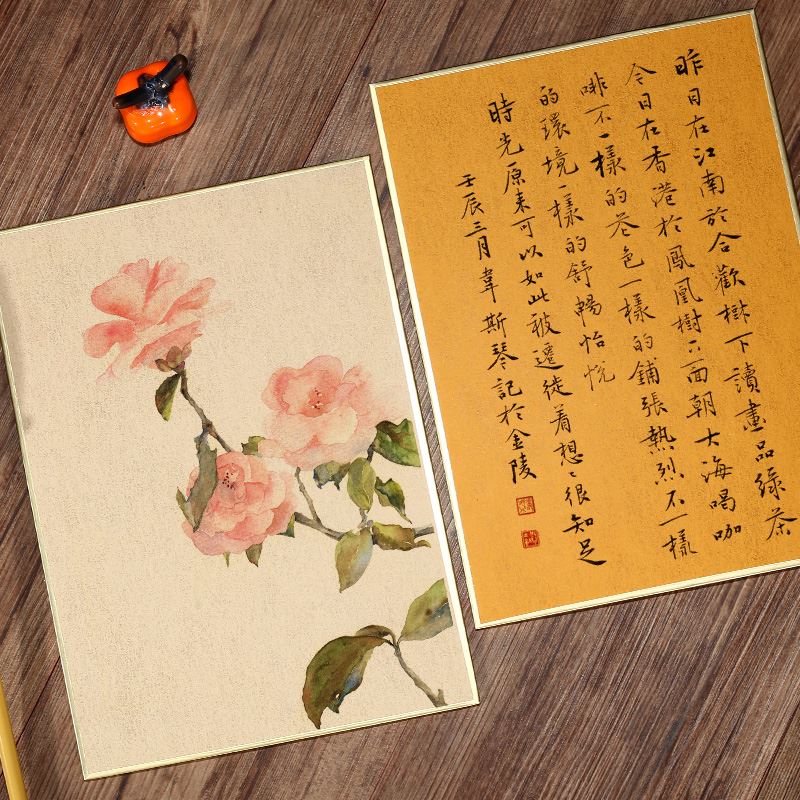 昨日在江南於合歡樹下讀畫品綠茶
今日在香港於鳳凰樹下面朝大海喝咖
啡不一樣的花色一樣的鋪張熱烈不一樣
的環境一樣的舒暢怡悅
時光原来可以如此被遷徙着想〻很知足
壬辰三月韋斯琴記於金陵